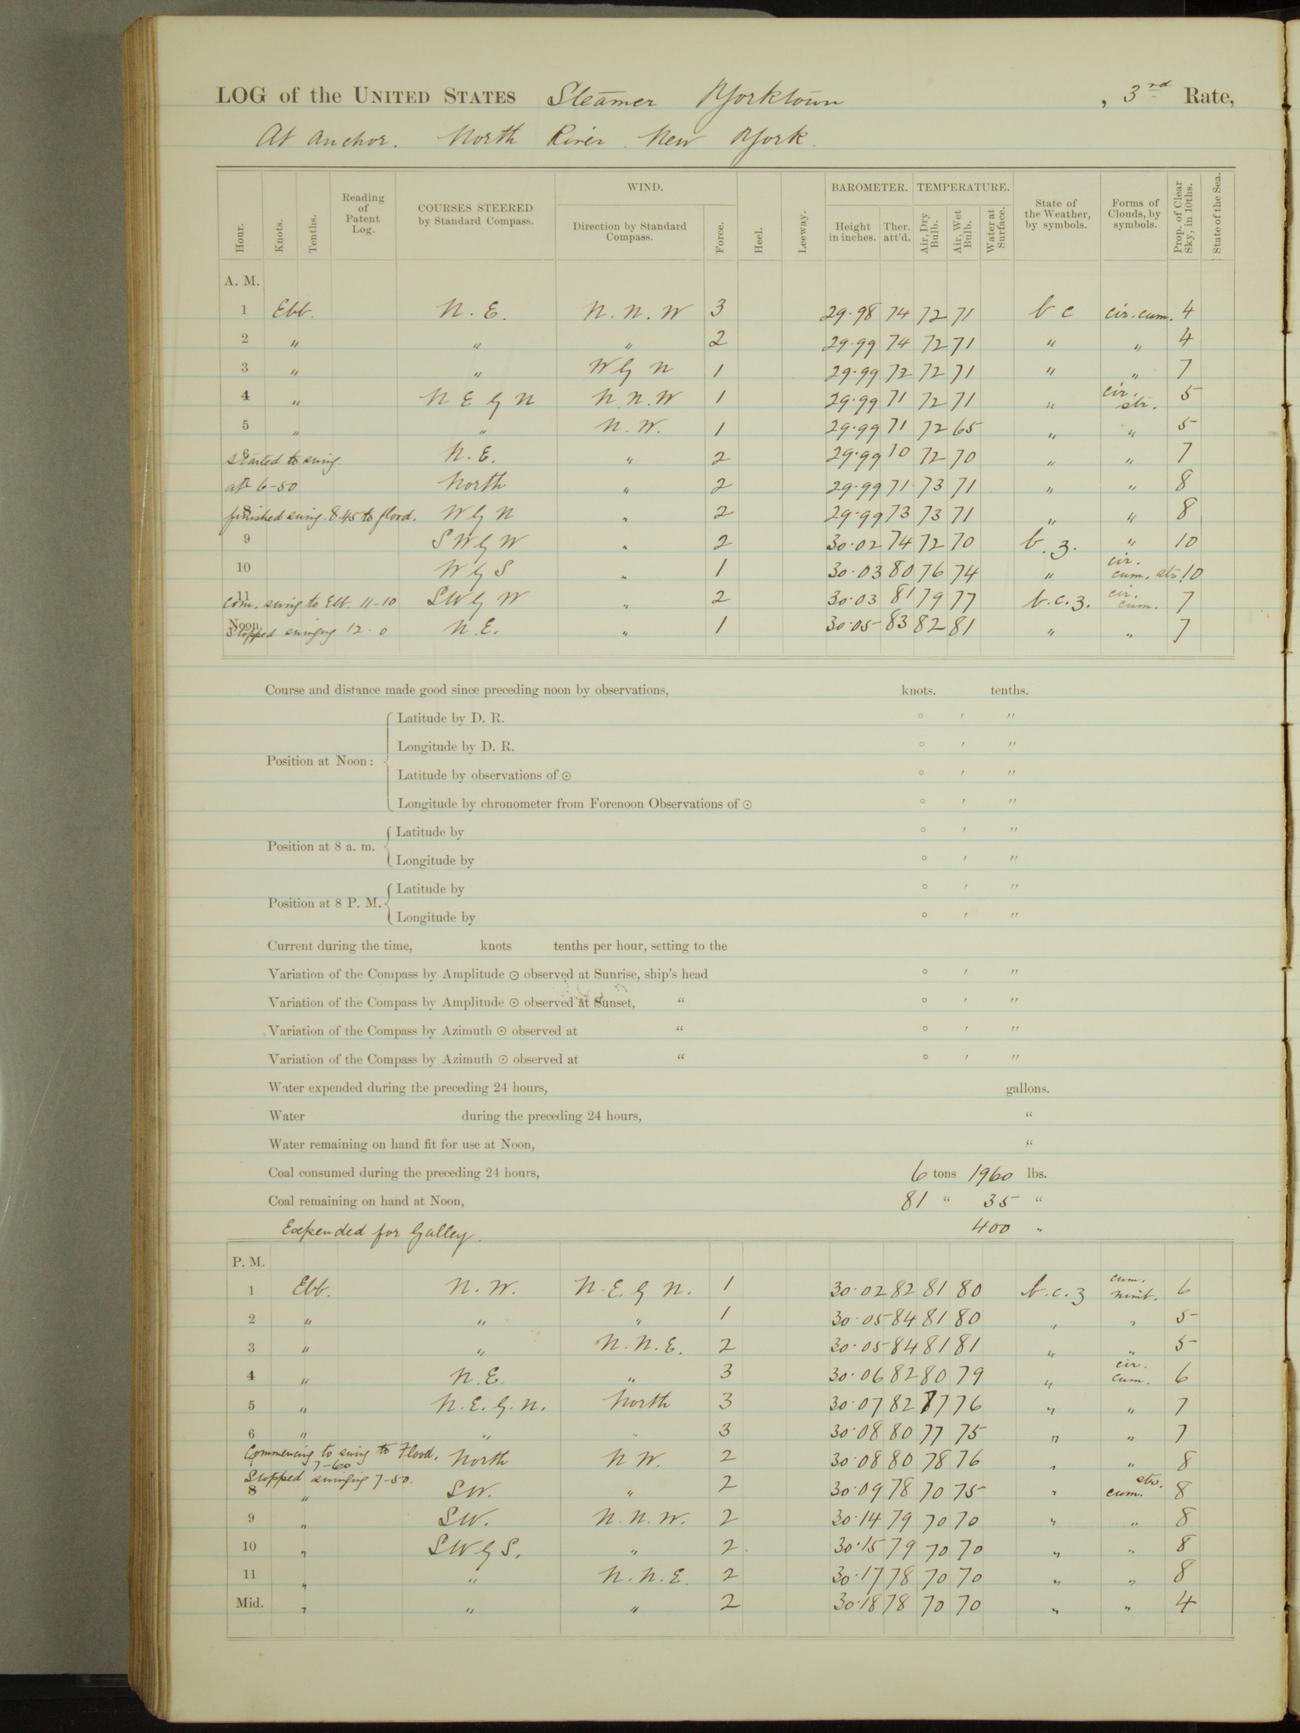 LOG of the UNITED STATES Steamer Yorktown , 3rd Rate,
At anchor. North River New York.
WIND. BAROMETER. TEMPERATURE.
Hour. Knots. Tenths. Reading of Patent Log. COURSES STEERED by Standard Compass. Direction by Standard Compass. Force. Heel. Leeway. Height in inches. Ther. att'd. Air, Dry Bulb. Air, Wet Bulb. Water at Surface. State of the Weather, by symbols. Forms of Clouds, by symbols. Prop. of Clear Sky, in 10ths. State of the Sea.
A. M.
1 Ebb. N. E. N. N. W 3 29.98 74 72 71 b c cir. cum. 4
2 " " " 2 29.99 74 72 71 " " 4
3 " " W by N 1 29.99 72 72 71 " " 7
4 " N E by N N. N. W 1 29.99 71 72 71 " cir. str. 5
5 " " N. W. 1 29.99 71 72 65 " " 5
started to swing N. E. " 2 29.99 10 72 70 " " 7
at 6-50 North " 2 29.99 71 73 71 " " 8
finished swing. 8.45 to flood. W by N " 2 29.99 73 73 71 " " 8
9 S W by W " 2 30.02 74 72 70 b. z. " 10
10 W by S " 1 30.03 80 76 74 " cir. cum. str. 10
11 Com. swing to Ebb. 11-10 S W by W " 2 30.03 81 79 77 b. c. z. cir. cum. 7
Noon. Stopped swinging 12-0 N. E. " 1 30.05 83 82 81 " " 7
Course and distance made good since preceding noon by observations, knots. tenths.
Position at Noon: Latitude by D. R. ° ′ ″
Longitude by D. R. ° ′ ″
Latitude by observations of ☉ ° ′ ″
Longitude by chronometer from Forenoon Observations of ☉ ° ′ ″
Position at 8 a. m. Latitude by ° ′ ″
Longitude by ° ′ ″
Position at 8 P. M. Latitude by ° ′ ″
Longitude by ° ′ ″
Current during the time, knots tenths per hour, setting to the
Variation of the Compass by Amplitude ☉ observed at Sunrise, ship's head ° ′ ″
Variation of the Compass by Amplitude ☉ observed at Sunset, " ° ′ ″
Variation of the Compass by Azimuth ☉ observed at " ° ′ ″
Variation of the Compass by Azimuth ☉ observed at " ° ′ ″
Water expended during the preceding 24 hours, gallons.
Water during the preceding 24 hours, "
Water remaining on hand fit for use at Noon, "
Coal consumed during the preceding 24 hours, 6 tons 1960 lbs.
Coal remaining on hand at Noon, 81 " 35 "
Expended for Galley. 400 "
P. M.
1 Ebb. N. W. N. E. by N. 1 30.02 82 81 80 b. c. z cum. nimb. 6
2 " " " 1 30.05 84 81 80 " " 5
3 " " N. N. E. 2 30.05 84 81 81 " " 5
4 " N. E. " 3 30.06 82 80 79 " cir. cum. 6
5 " N. E. by N. North 3 30.07 82 77 76 " " 7
6 " " " 3 30.08 80 77 75 " " 7
Commencing to swing to Flood. 7-60 North N W. 2 30.08 80 78 76 " " 8
Stopped swinging 7-50.
8 " S W. " 2 30.09 78 70 75 " str. cum. 8
9 " S W. N. N. W. 2 30.14 79 70 70 " " 8
10 " S W by S. " 2 30.15 79 70 70 " " 8
11 " " N. N. E. 2 30.17 78 70 70 " " 8
Mid. " " " 2 30.18 78 70 70 " " 4